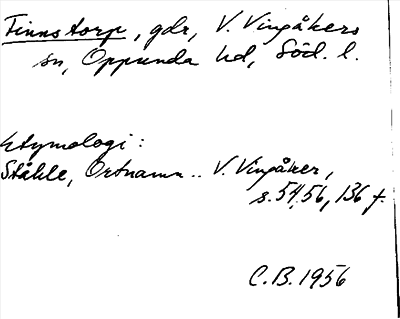 Finnstorp, gdr, V. Vingåkers
sn, Oppunda hd, Söd. l.
Etymologi:
Ståhle, Ortnamn.. V. Vingåker,
s. 54, 56, 136 f.
C.B. 1956